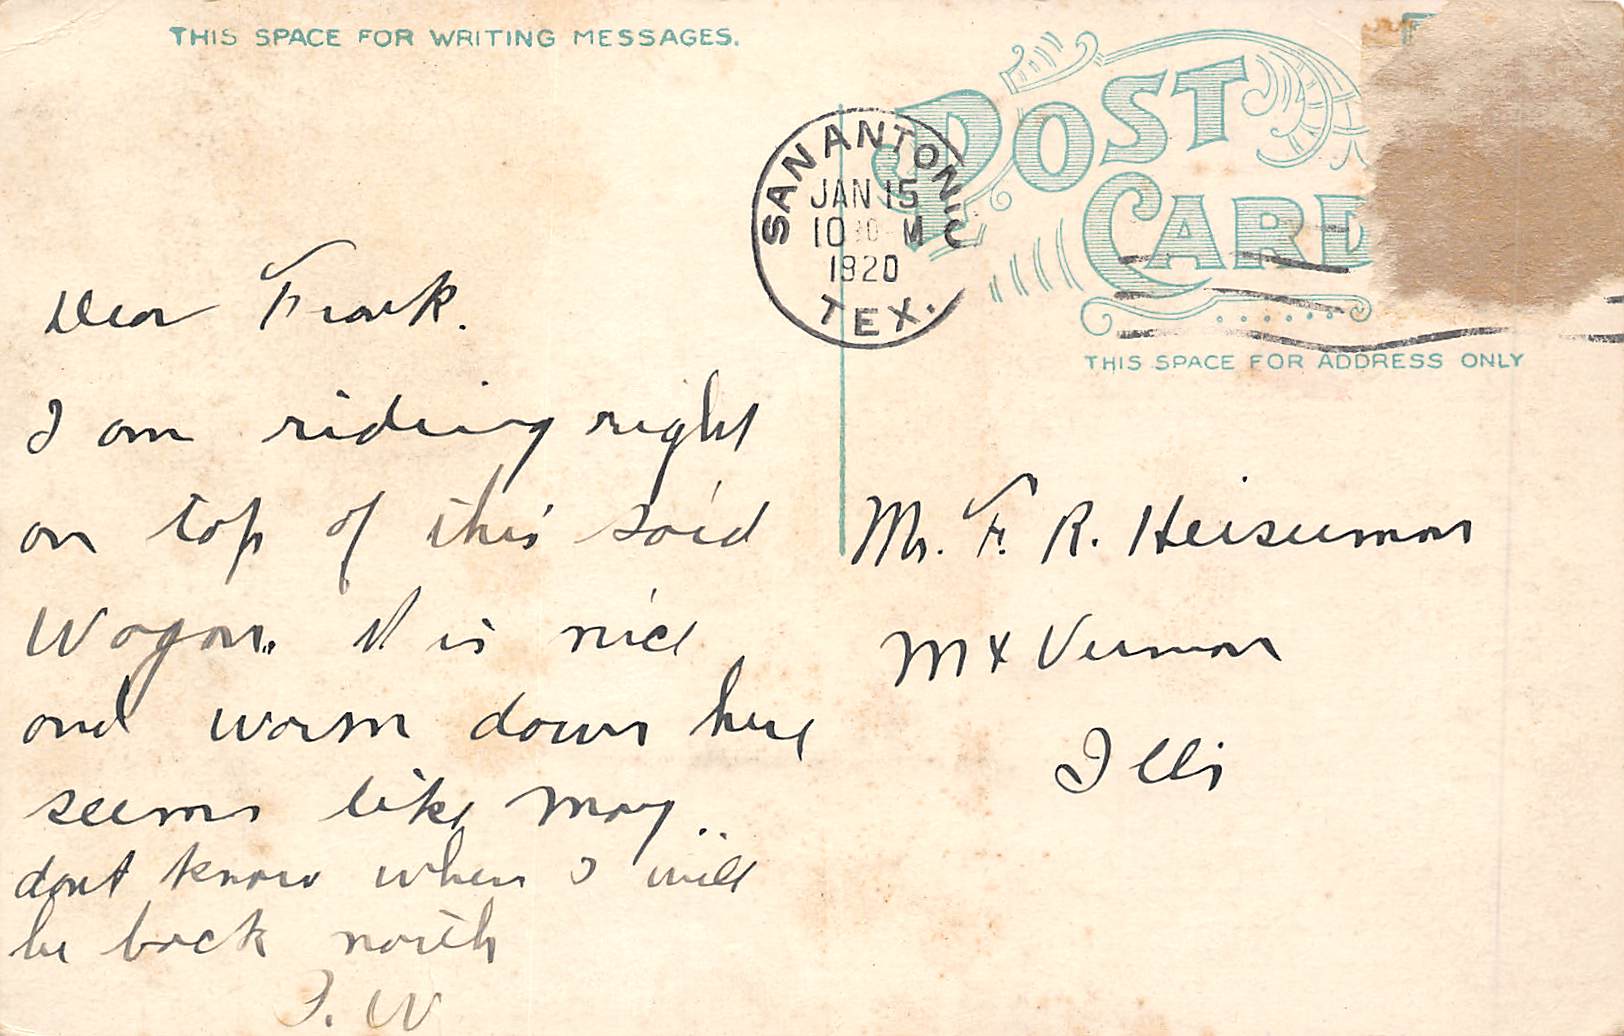 THIS SPACE FOR WRITING MESSAGES.
POST
CARD
SAN ANTONIO
JAN 15
10 30 M
1920
TEX.
THIS SPACE FOR ADDRESS ONLY
Dear Frank.
I am riding right
on top of this said
Wagon. It is nice
and warm down here
seems like may..
dont know when I will
be back north
J. W
Mr. F. R. Heiseman
Mt Vernon
Ills